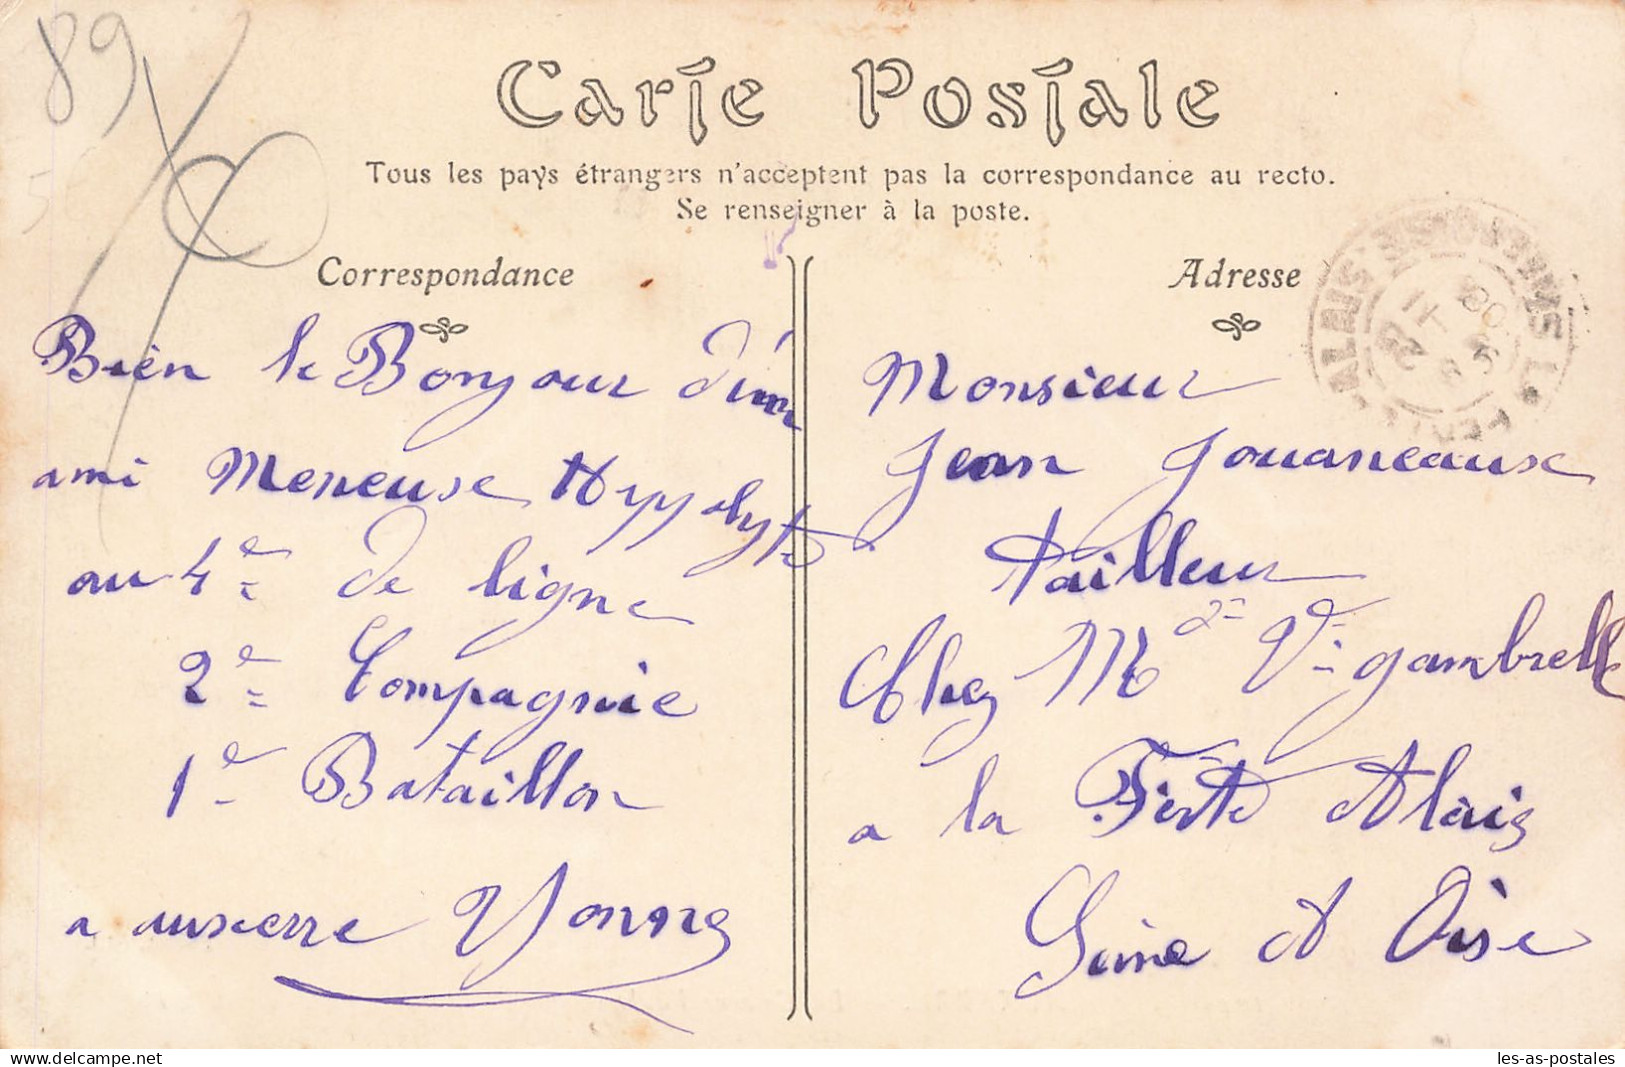 89
Carte Postale
Tous les pays étrangers n'acceptent pas la correspondance au recto.
Se renseigner à la poste.
Correspondance
Bien le Bonjour d'un
ami Meneuse Hyppolyte
au 4e de ligne
2e Compagnie
1e Bataillon
a auxerre Yonne
Adresse
Monsieur
Jean Jouaneaux
tailleur
Chez Md Ve gambrelle
a la Ferté Alais
Seine et Oise
les-as-postales